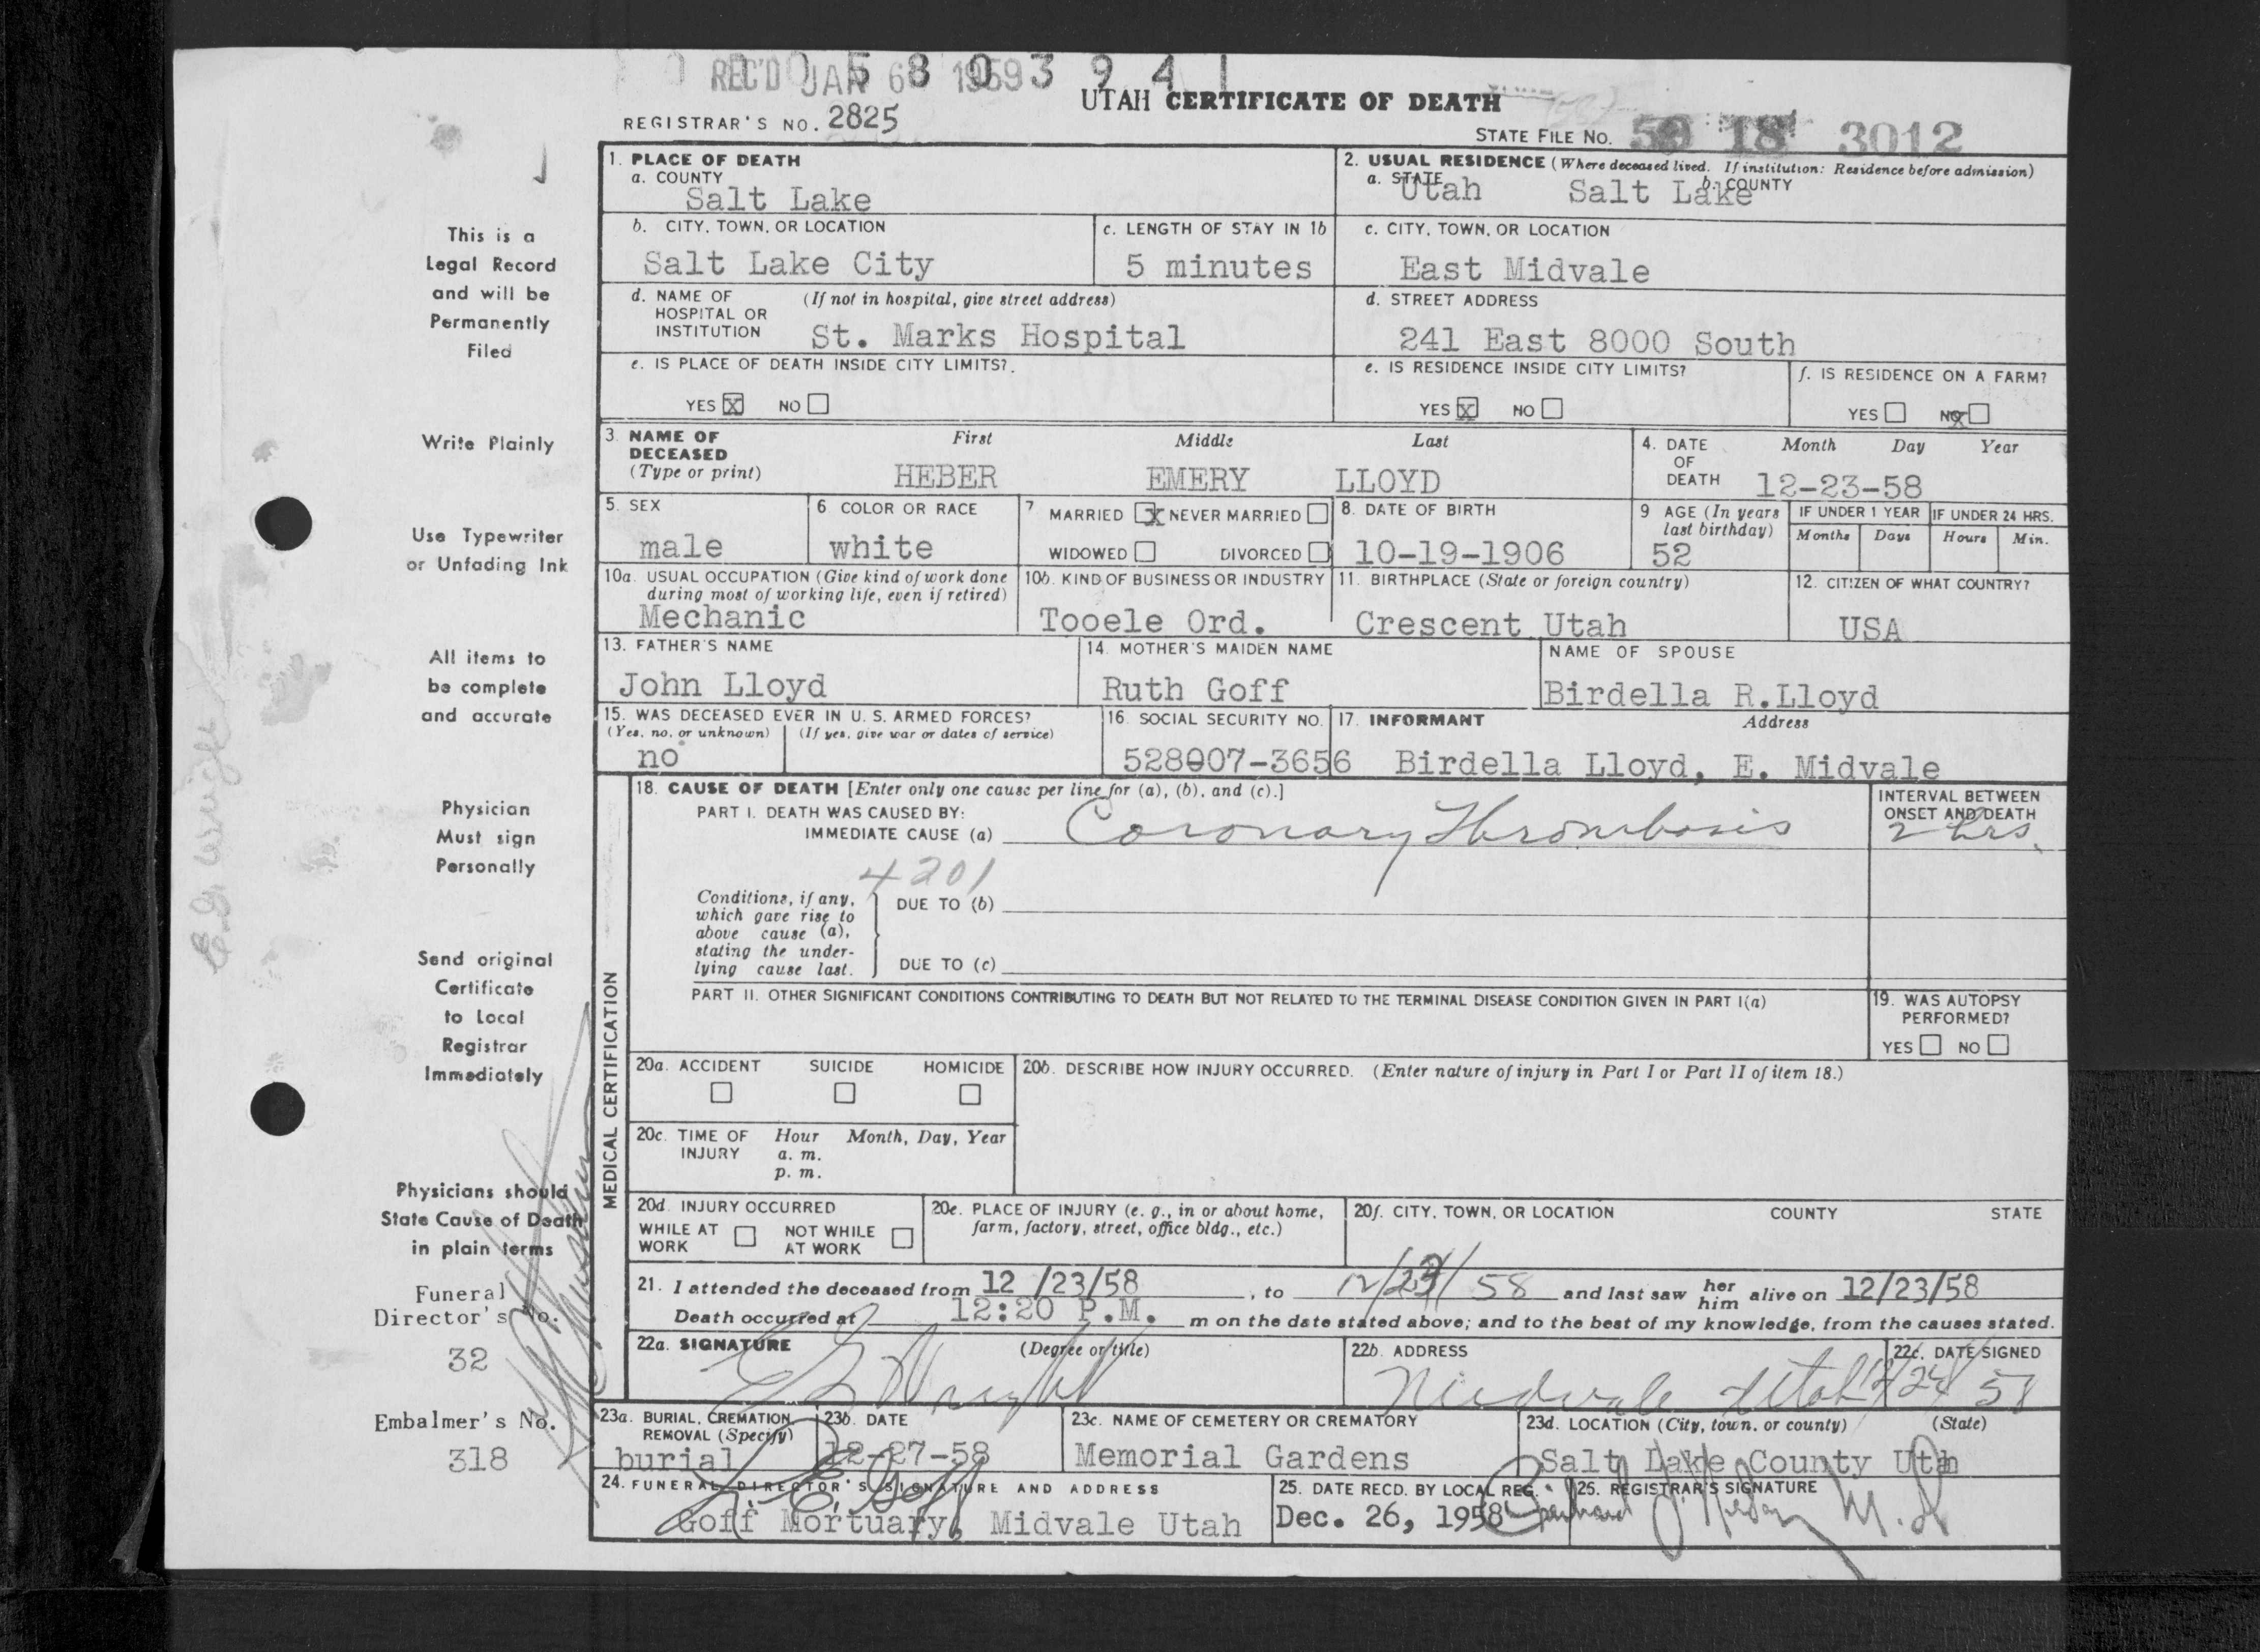 REC'D JAN 6 1959
0 5 8 0 3 9 4 1
UTAH CERTIFICATE OF DEATH
REGISTRAR'S NO. 2825
STATE FILE NO. 18 3012
1. PLACE OF DEATH
a. COUNTY
Salt Lake
2. USUAL RESIDENCE (Where deceased lived. If institution: Residence before admission)
a. STATE b. COUNTY
Utah Salt Lake
b. CITY, TOWN, OR LOCATION
Salt Lake City
c. LENGTH OF STAY IN 1b
5 minutes
c. CITY, TOWN, OR LOCATION
East Midvale
d. NAME OF HOSPITAL OR INSTITUTION (If not in hospital, give street address)
St. Marks Hospital
d. STREET ADDRESS
241 East 8000 South
e. IS PLACE OF DEATH INSIDE CITY LIMITS?
YES X NO
e. IS RESIDENCE INSIDE CITY LIMITS?
YES X NO
f. IS RESIDENCE ON A FARM?
YES NO X
3. NAME OF DECEASED (Type or print)
First Middle Last
HEBER EMERY LLOYD
4. DATE OF DEATH Month Day Year
12-23-58
5. SEX
male
6 COLOR OR RACE
white
7 MARRIED X NEVER MARRIED
WIDOWED DIVORCED
8. DATE OF BIRTH
10-19-1906
9 AGE (In years last birthday)
52
IF UNDER 1 YEAR
Months Days
IF UNDER 24 HRS.
Hours Min.
10a. USUAL OCCUPATION (Give kind of work done during most of working life, even if retired)
Mechanic
10b. KIND OF BUSINESS OR INDUSTRY
Tooele Ord.
11. BIRTHPLACE (State or foreign country)
Crescent Utah
12. CITIZEN OF WHAT COUNTRY?
USA
13. FATHER'S NAME
John Lloyd
14. MOTHER'S MAIDEN NAME
Ruth Goff
NAME OF SPOUSE
Birdella R.Lloyd
15. WAS DECEASED EVER IN U. S. ARMED FORCES?
(Yes, no, or unknown) (If yes, give war or dates of service)
no
16. SOCIAL SECURITY NO.
528007-3656
17. INFORMANT Address
Birdella Lloyd, E. Midvale
MEDICAL CERTIFICATION
18. CAUSE OF DEATH [Enter only one cause per line for (a), (b), and (c).]
PART I. DEATH WAS CAUSED BY:
IMMEDIATE CAUSE (a) Coronary Thrombosis
INTERVAL BETWEEN ONSET AND DEATH
2 hrs.
4201
Conditions, if any, which gave rise to above cause (a), stating the underlying cause last.
DUE TO (b)
DUE TO (c)
PART II. OTHER SIGNIFICANT CONDITIONS CONTRIBUTING TO DEATH BUT NOT RELATED TO THE TERMINAL DISEASE CONDITION GIVEN IN PART I(a)
19. WAS AUTOPSY PERFORMED?
YES NO
20a. ACCIDENT SUICIDE HOMICIDE
20b. DESCRIBE HOW INJURY OCCURRED. (Enter nature of injury in Part I or Part II of item 18.)
20c. TIME OF INJURY Hour Month, Day, Year
a. m.
p. m.
20d. INJURY OCCURRED
WHILE AT WORK NOT WHILE AT WORK
20e. PLACE OF INJURY (e. g., in or about home, farm, factory, street, office bldg., etc.)
20f. CITY, TOWN, OR LOCATION COUNTY STATE
21. I attended the deceased from 12 /23/58, to 12/23/58 and last saw her him alive on 12/23/58
Death occurred at 12:20 P.M. m on the date stated above; and to the best of my knowledge, from the causes stated.
22a. SIGNATURE (Degree or title)
22b. ADDRESS
Midvale Utah
22c. DATE SIGNED
12/24/58
23a. BURIAL, CREMATION, REMOVAL (Specify)
burial
23b. DATE
12-27-58
23c. NAME OF CEMETERY OR CREMATORY
Memorial Gardens
23d. LOCATION (City, town, or county) (State)
Salt Lake County Utah
24. FUNERAL DIRECTOR'S SIGNATURE AND ADDRESS
Goff Mortuary, Midvale Utah
25. DATE RECD. BY LOCAL REG.
Dec. 26, 1958
26. REGISTRAR'S SIGNATURE
This is a
Legal Record
and will be
Permanently
Filed
Write Plainly
Use Typewriter
or Unfading Ink
All items to
be complete
and accurate
Physician
Must sign
Personally
Send original
Certificate
to Local
Registrar
Immediately
Physicians should
State Cause of Death
in plain terms
Funeral
Director's No.
32
Embalmer's No.
318